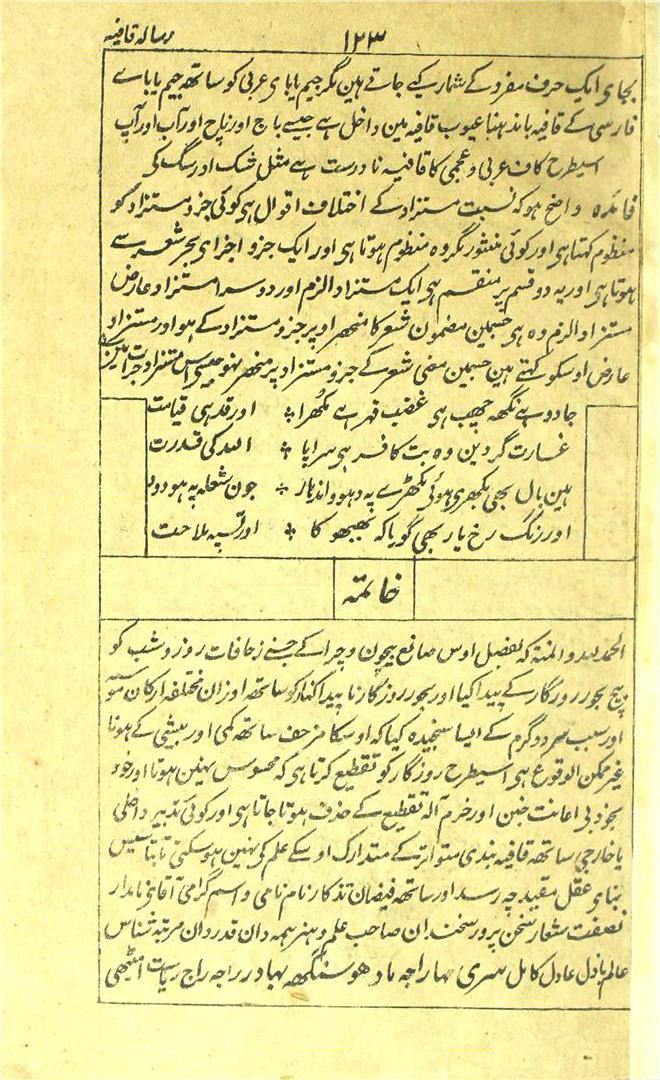 ۱۲۳
رسالہ قافیہ
بجای ایک حرف مفرد کے شمار کیے جاتے ہین مگر جیم یا بای عربی کو ساتھ جیم یا باے
فارسی کے قافیہ باندہنا عیوب قافیہ مین داخل ہے جیسے باج اور ناچ اور آب اور آپ
اسیطرح کاف عربی و عجمی کا قافیہ نا درست ہے مثل شک اور سگ کی
فائدہ واضح ہو کہ نسبت مستزاد کے اختلاف اقوال ہی کوئی جزو مستزاد کو
منظوم کہتا ہی اور کوئی منثور مگر وہ منظوم ہوتا ہی اور ایک جزو اجزای بحر شعر سے
ہوتا ہی اور یہ دو قسم پر منقسم ہی ایک مستزاد الزم اور دوسرا مستزاد عارض
مستزاد الزم وہ ہی جسمین مضمون شعر کا منحصر اوپر جزو مستزاد کے ہو اور مستزاد
عارض اوسکو کہتے ہین جسمین معنی شعر کے جزو مستزاد پر منحصر نہو جیسے اس مستزاد جرات مین
جادو ہے نگھ چھب ہی غضب قہر ہے مکھڑا ؞ اور قد ہی قیامت
غارت گر دین وہ بت کافر ہی سراپا ؞ اللہ کی قدرت
ہین بال بھی بکھری ہوئی مکھڑے پہ ؞ جون شعلہ پہ ہو دود
اور رنگ رخ یار بھی گویا کہ بھبھوکا ؞ اور تسپہ ملاحت
خاتمہ
الحمد للہ و المنۃ کہ بفضل اوس صانع بیچون و چرا کے جسنے زحافات روز و شب کو
بیچ بحور روزگار کے پیدا کیا اور بحور روزگار نا پیدا کنار کو ساتھ اوزان مختلفہ ارکان
اور سبب سرد و گرم کے ایسا سنجیدہ کیا کہ اوسکا مزحف ساتھ کمی اور بیشی کے ہونا
غیر ممکن الوقوع ہی اسیطرح روزگار کو تقطیع کرتا ہی کہ محسوس نہین ہوتا اور خود
بخود بی اعانت خبن اور خرم آلہ تقطیع کے حذف ہوتا جاتا ہی اور کوئی تدبیر داخلی
یا خارجی ساتھ قافیہ بندی متواتر کے متدارک اوسکے علم کی نہین ہو سکتی تا بتاسیس
بنای عقل مقید چہ رسد اور ساتھ فیضان تذکار نام نامی و اسم گرامی آقای نامدار
نصفت شعار سخن پرور سخندان صاحب علم و ہنر ہمہ دان قدردان مرتبہ شناس
عالم باذل عادل کامل سری مہاراجہ مادھو سنگھ بہادر راجہ راج ریاست امیٹھی